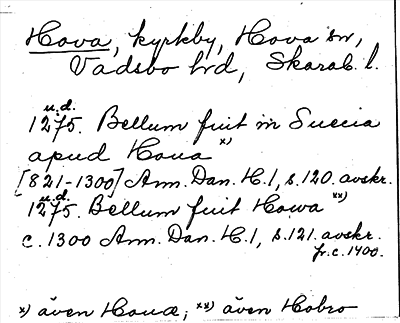 Hova, kyrkby, Hova sn,
Vadsbo hd, Skarab. l.
u.d.
1275. Bellum fuit in Suecia
apud Houa x)
[821-1300] Ann. Dan. H.1, s.120. avskr.
u.d.
1275. Bellum fuit Howa xx)
c. 1300 Ann. Dan. H.1, s.121. avskr.
fr. c. 1400.
x) även Houæ; xx) även Hobro